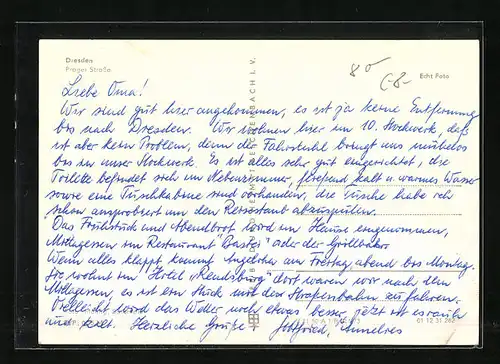 Dresden
Prager Straße
80
C-8-
Echt Foto
Liebe Oma!
Wir sind gut hier angekommen, es ist ja keine Entfernung
bis nach Dresden. Wir wohnen hier im 10. Stockwerk, daß
ist aber kein Problem, denn der Fahrstuhl bringt uns mühelos
bis in unser Stockwerk. Es ist alles sehr gut eingerichtet, die
Toilette befindet sich im Nebenzimmer, fließend kalt u. warmes Wasser
sowie eine Duschkabine sind vorhanden, die Dusche habe ich
schon ausprobiert um den Reisestaub abzuspülen.
Das Frühstück und Abendbrot wird im Hause eingenommen,
Mittagessen im Restaurant "Bastei" oder der Grillbar.
Wenn alles klappt kommt Angelika am Freitag abend bis Montag.
Sie wohnt im Hotel „ dort waren wir nach dem
Mittagessen, es ist ein Stück mit der Straßenbahn zu fahren.
Vielleicht wird das Wetter noch etwas besser, jetzt ist es rauh
und kalt. Herzliche Grüße Gottfried, Annelies
01 12 31 262